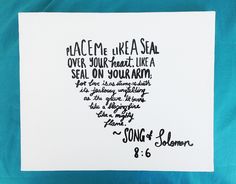 PLACE ME LIKE A SEAL
OVER YOUR heart, LIKE A
SEAL ON YOUR ARM;
for love is as strong as death
its jealousy unyielding
as the grave. It burns
like a blazing fire
like a mighty
flame.
~ SONG of Solomon
8:6